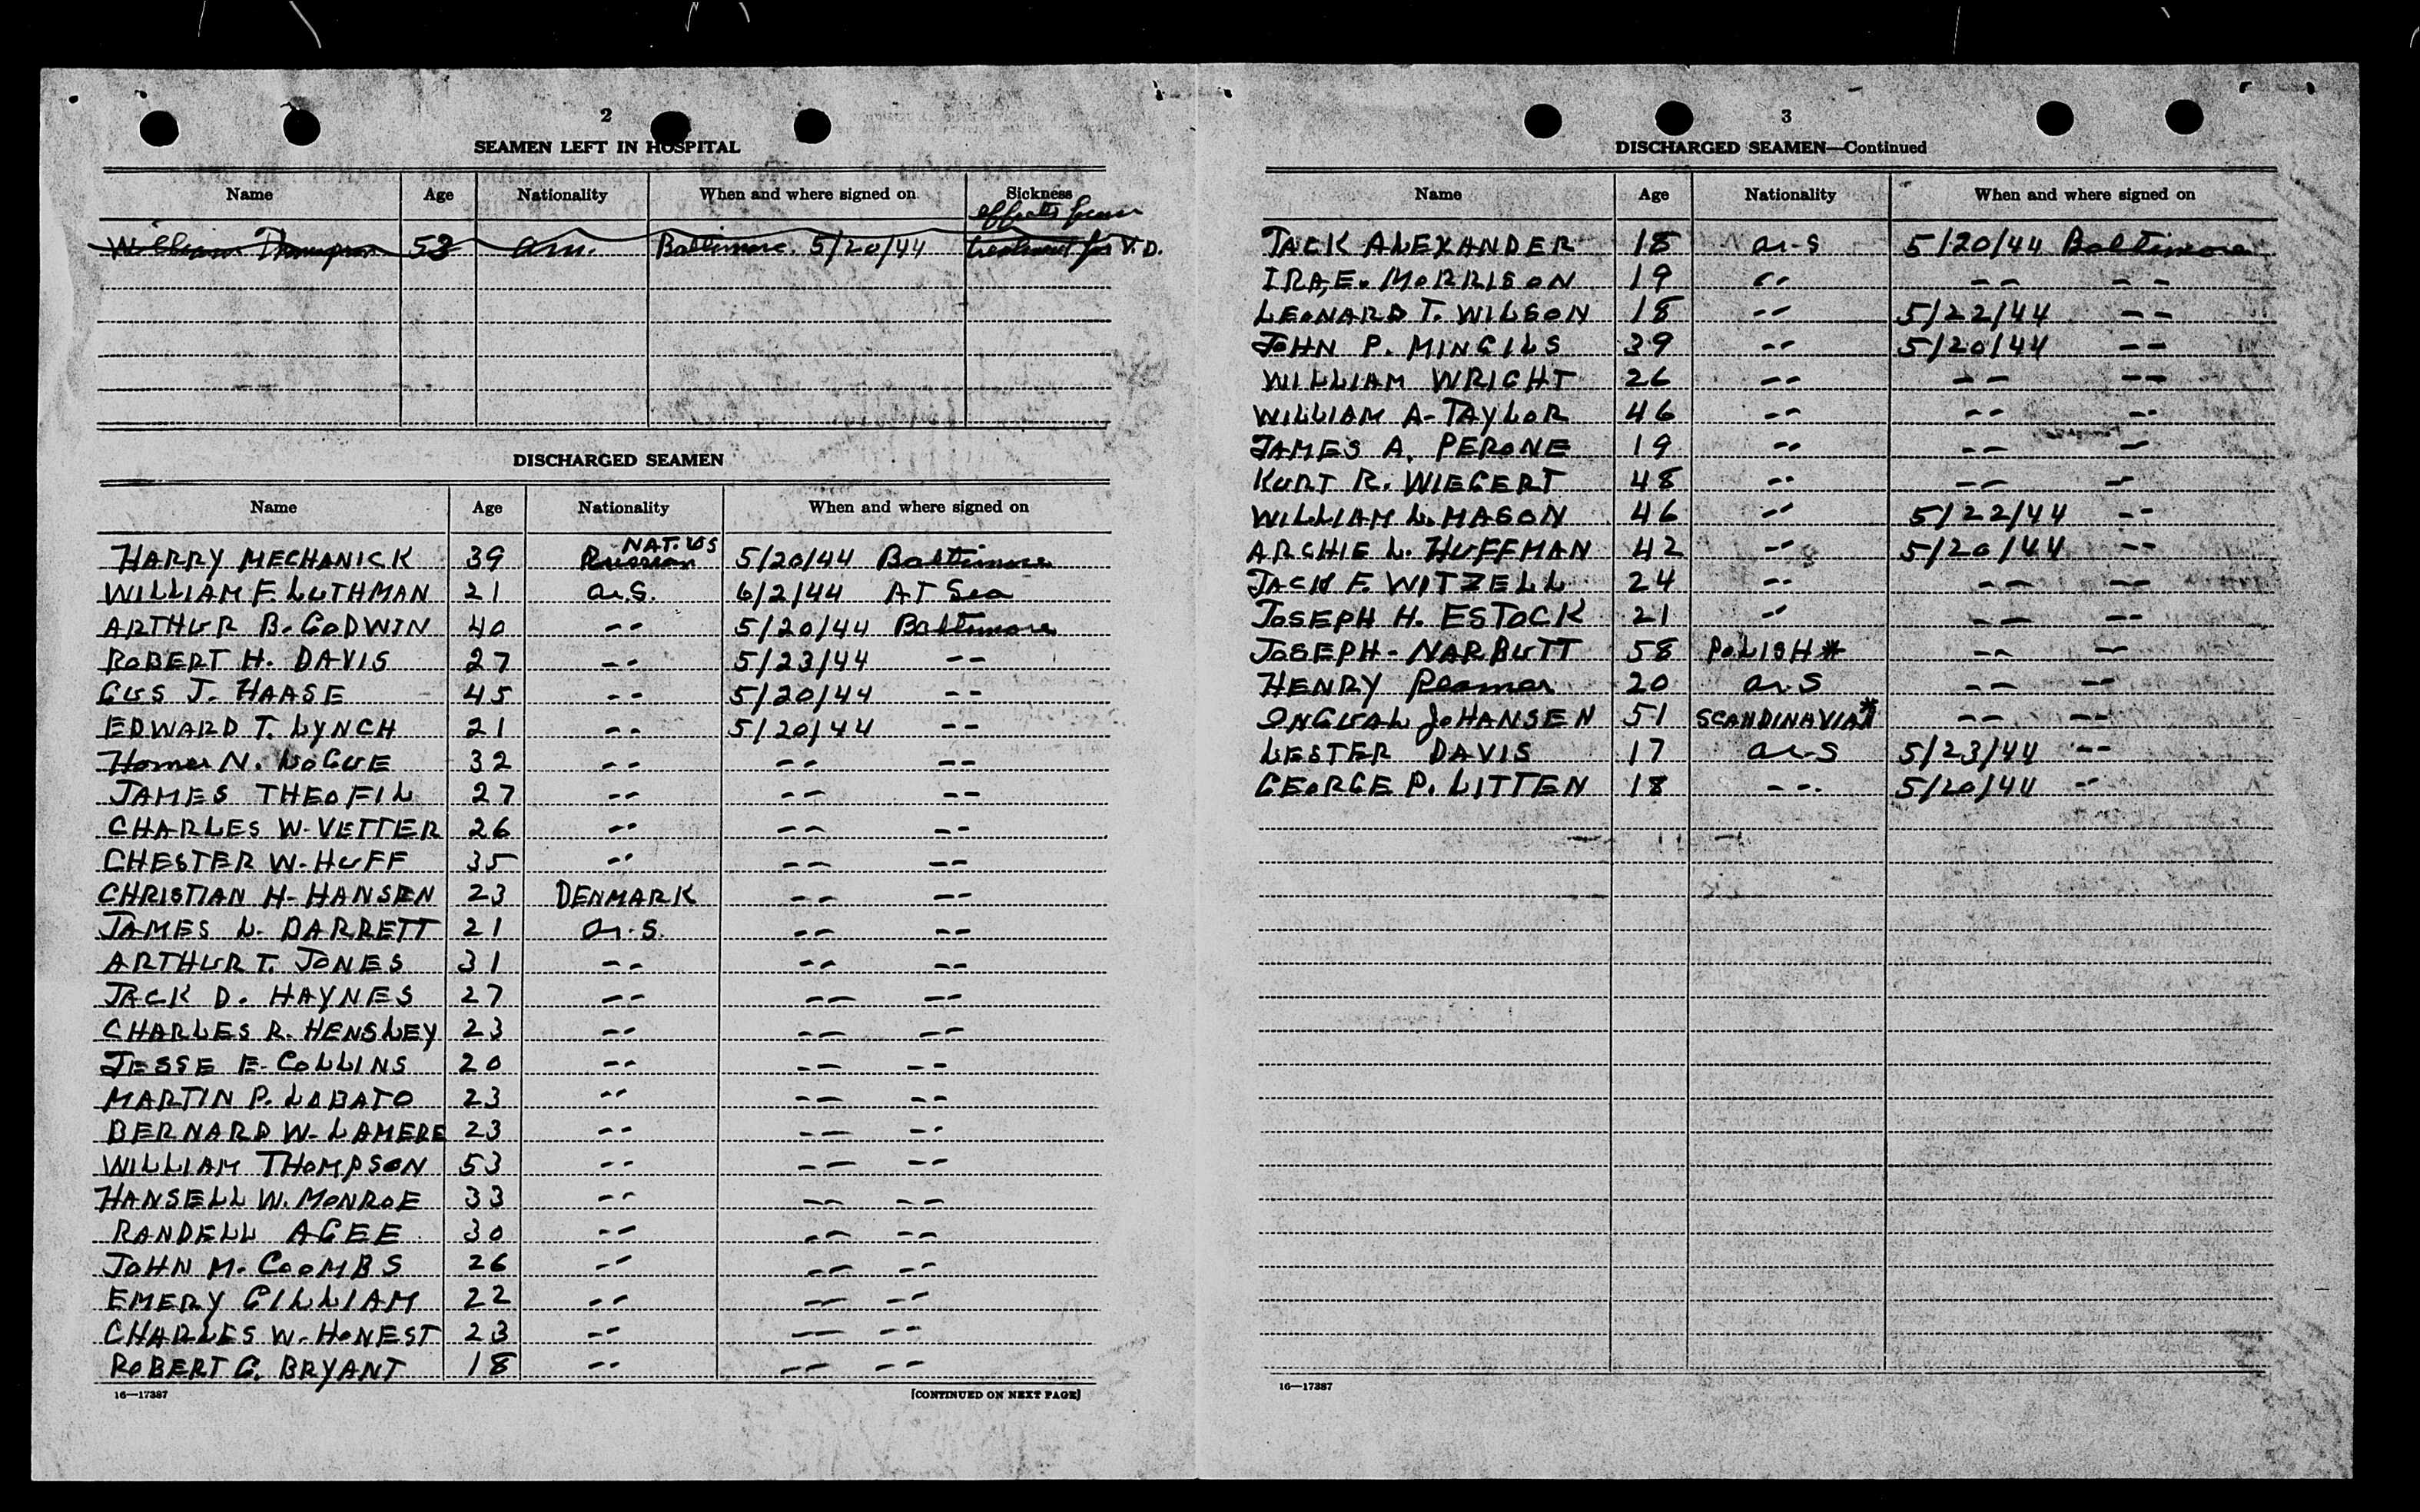 2
SEAMEN LEFT IN HOSPITAL
Name Age Nationality When and where signed on Sickness
effects from
William Thompson 53 am. Baltimore. 5/20/44 treatment for V.D.
DISCHARGED SEAMEN
Name Age Nationality When and where signed on
NAT. US
HARRY MECHANICK 39 Russian 5/20/44 Baltimore
WILLIAM F. LUTHMAN 21 U.S. 6/2/44 AT Sea
ARTHUR B. GODWIN 40 -- 5/20/44 Baltimore
ROBERT H. DAVIS 27 -- 5/23/44 --
GUS J. HAASE 45 -- 5/20/44 --
EDWARD T. LYNCH 21 -- 5/20/44 --
Homer N. LOGUE 32 -- -- --
JAMES THEOFIL 27 -- -- --
CHARLES W. VETTER 26 -- -- --
CHESTER W. HUFF 35 -- -- --
CHRISTIAN H. HANSEN 23 DENMARK -- --
JAMES L. BARRETT 21 U.S. -- --
ARTHUR T. JONES 31 -- -- --
JACK D. HAYNES 27 -- -- --
CHARLES R. HENSLEY 23 -- -- --
JESSE E. COLLINS 20 -- -- --
MARTIN P. LOBATO 23 -- -- --
BERNARD W. LAMERE 23 -- -- --
WILLIAM THOMPSON 53 -- -- --
HANSELL W. MONROE 33 -- -- --
RANDELL AGEE 30 -- -- --
JOHN M. COOMBS 26 -- -- --
EMERY GILLIAM 22 -- -- --
CHARLES W. HONEST 23 -- -- --
ROBERT G. BRYANT 18 -- -- --
16—17387 [CONTINUED ON NEXT PAGE]
3
DISCHARGED SEAMEN—Continued
Name Age Nationality When and where signed on
JACK ALEXANDER 18 U.S 5/20/44 Baltimore
IRA E. MORRISON 19 -- -- --
LEONARD T. WILSON 18 -- 5/22/44 --
JOHN P. MINGILS 39 -- 5/20/44 --
WILLIAM WRIGHT 26 -- -- --
WILLIAM A. TAYLOR 46 -- -- --
JAMES A. PERONE 19 -- -- --
KURT R. WIEGERT 48 -- -- --
WILLIAM L. MASON 46 -- 5/22/44 --
ARCHIE L. HUFFMAN 42 -- 5/20/44 --
JACK F. WITZELL 24 -- -- --
JOSEPH H. ESTOCK 21 -- -- --
JOSEPH - NARBUTT 58 POLISH* -- --
HENRY Reamer 20 U.S -- --
INGVAL JOHANSEN 51 SCANDINAVIAN* -- --
LESTER DAVIS 17 U.S 5/23/44 --
GEORGE P. LITTEN 18 -- 5/20/44 --
16—17387